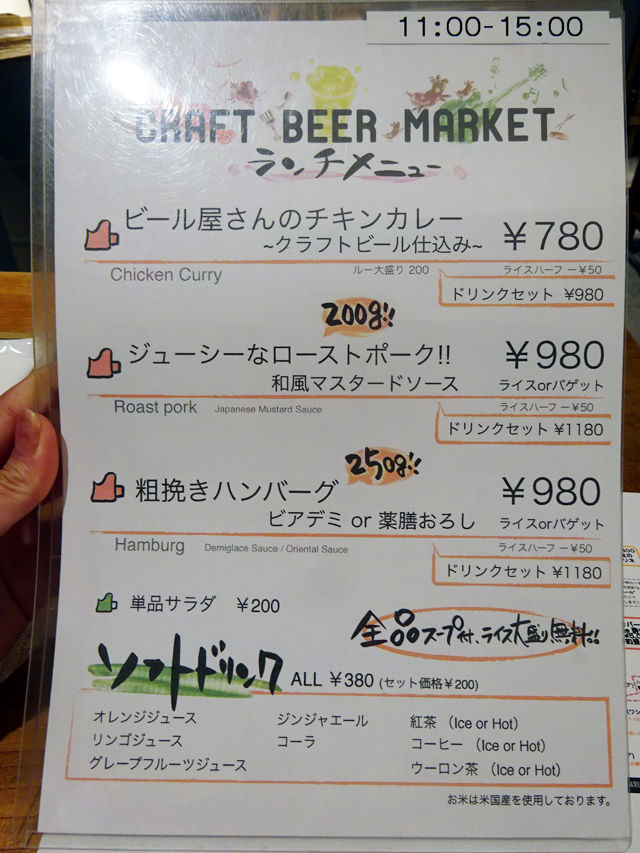 11:00-15:00
CRAFT BEER MARKET
ランチメニュー
ビール屋さんのチキンカレー
~クラフトビール仕込み~
￥780
Chicken Curry
ルー大盛り 200
ライスハーフ ー￥50
ドリンクセット ¥980
200g!!
ジューシーなローストポーク!!
￥980
和風マスタードソース
ライスorバゲット
Roast pork
Japanese Mustard Sauce
ライスハーフ ー￥50
ドリンクセット ¥1180
250g!!
粗挽きハンバーグ
￥980
ビアデミ or 薬膳おろし
ライスorバゲット
Hamburg
Demiglace Sauce / Oriental Sauce
ライスハーフ ー￥50
ドリンクセット ¥1180
単品サラダ ￥200
全品スープ付、ライス大盛り無料!!
ソフトドリンク
ALL ￥380 (セット価格¥200)
オレンジジュース
ジンジャエール
紅茶 （Ice or Hot）
リンゴジュース
コーラ
コーヒー （Ice or Hot）
グレープフルーツジュース
ウーロン茶 （Ice or Hot）
お米は米国産を使用しております。